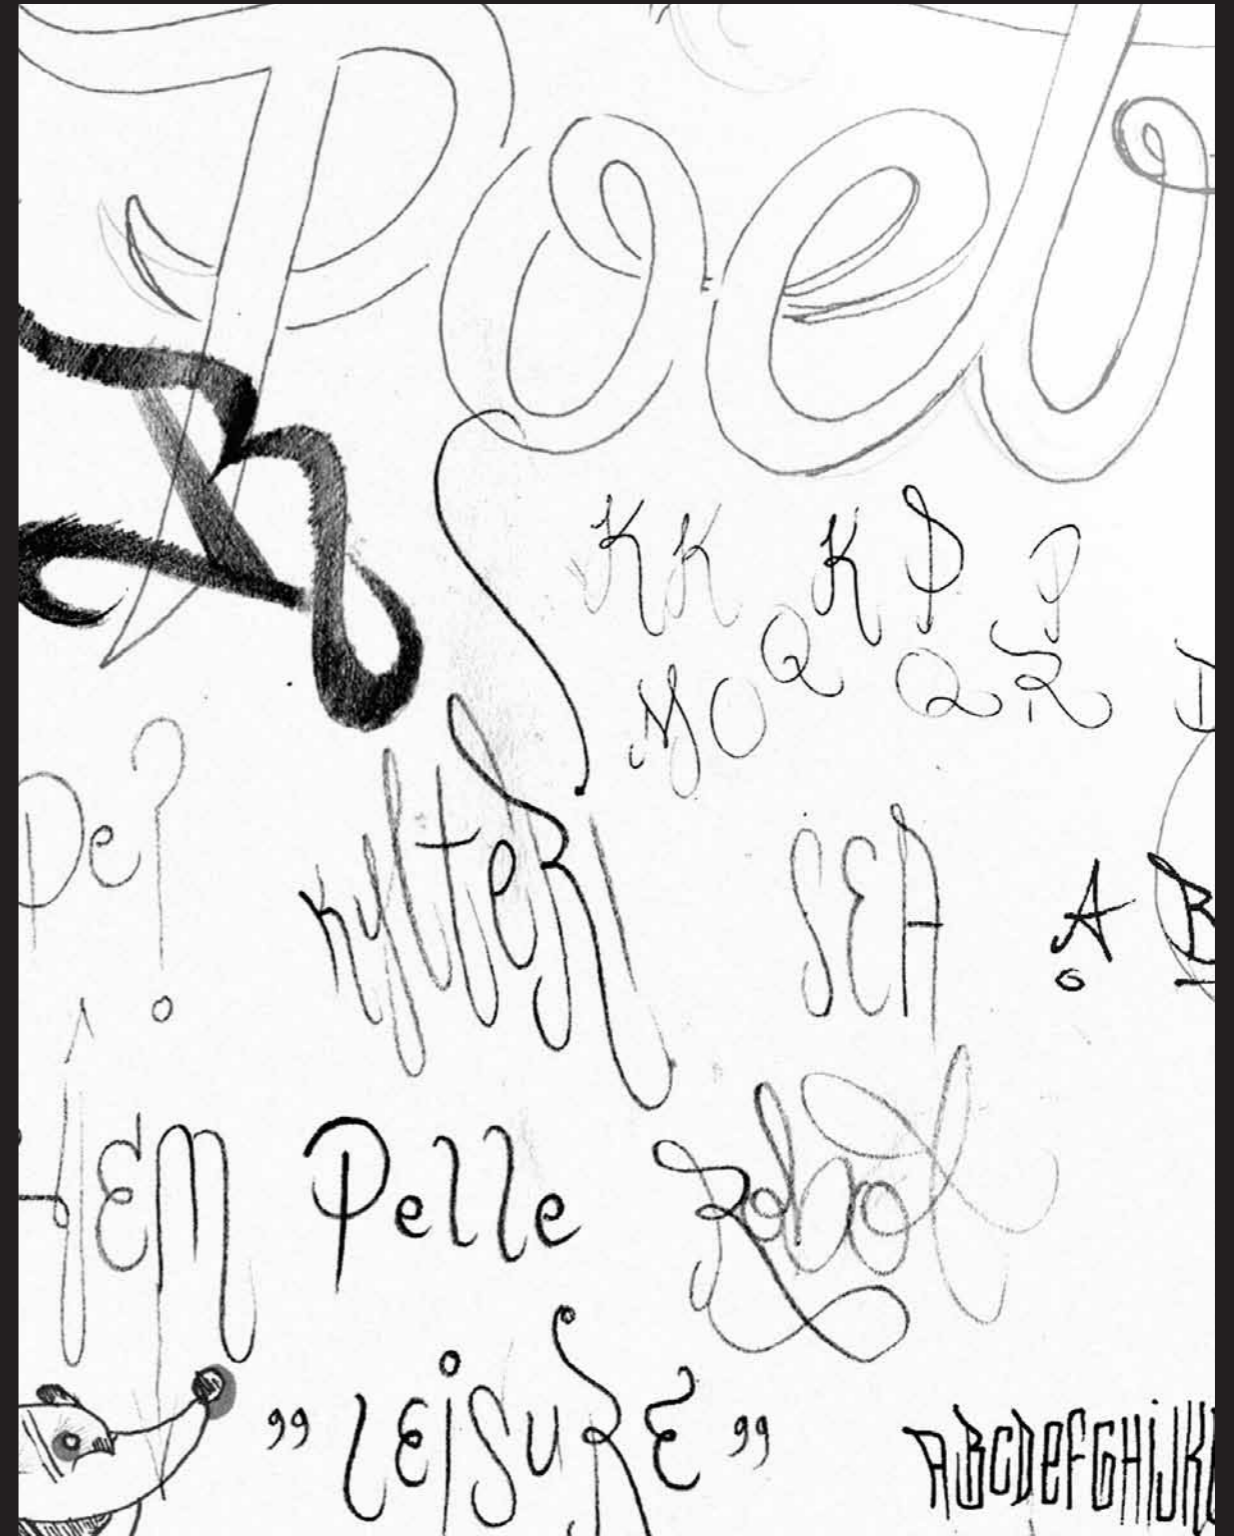 Poet
R
K K K P P
M O Q Q R
De?
KylteR
SEA
A B
HEM
Pelle
Robot
"LEiSURE"
ABCDEFGHIJK